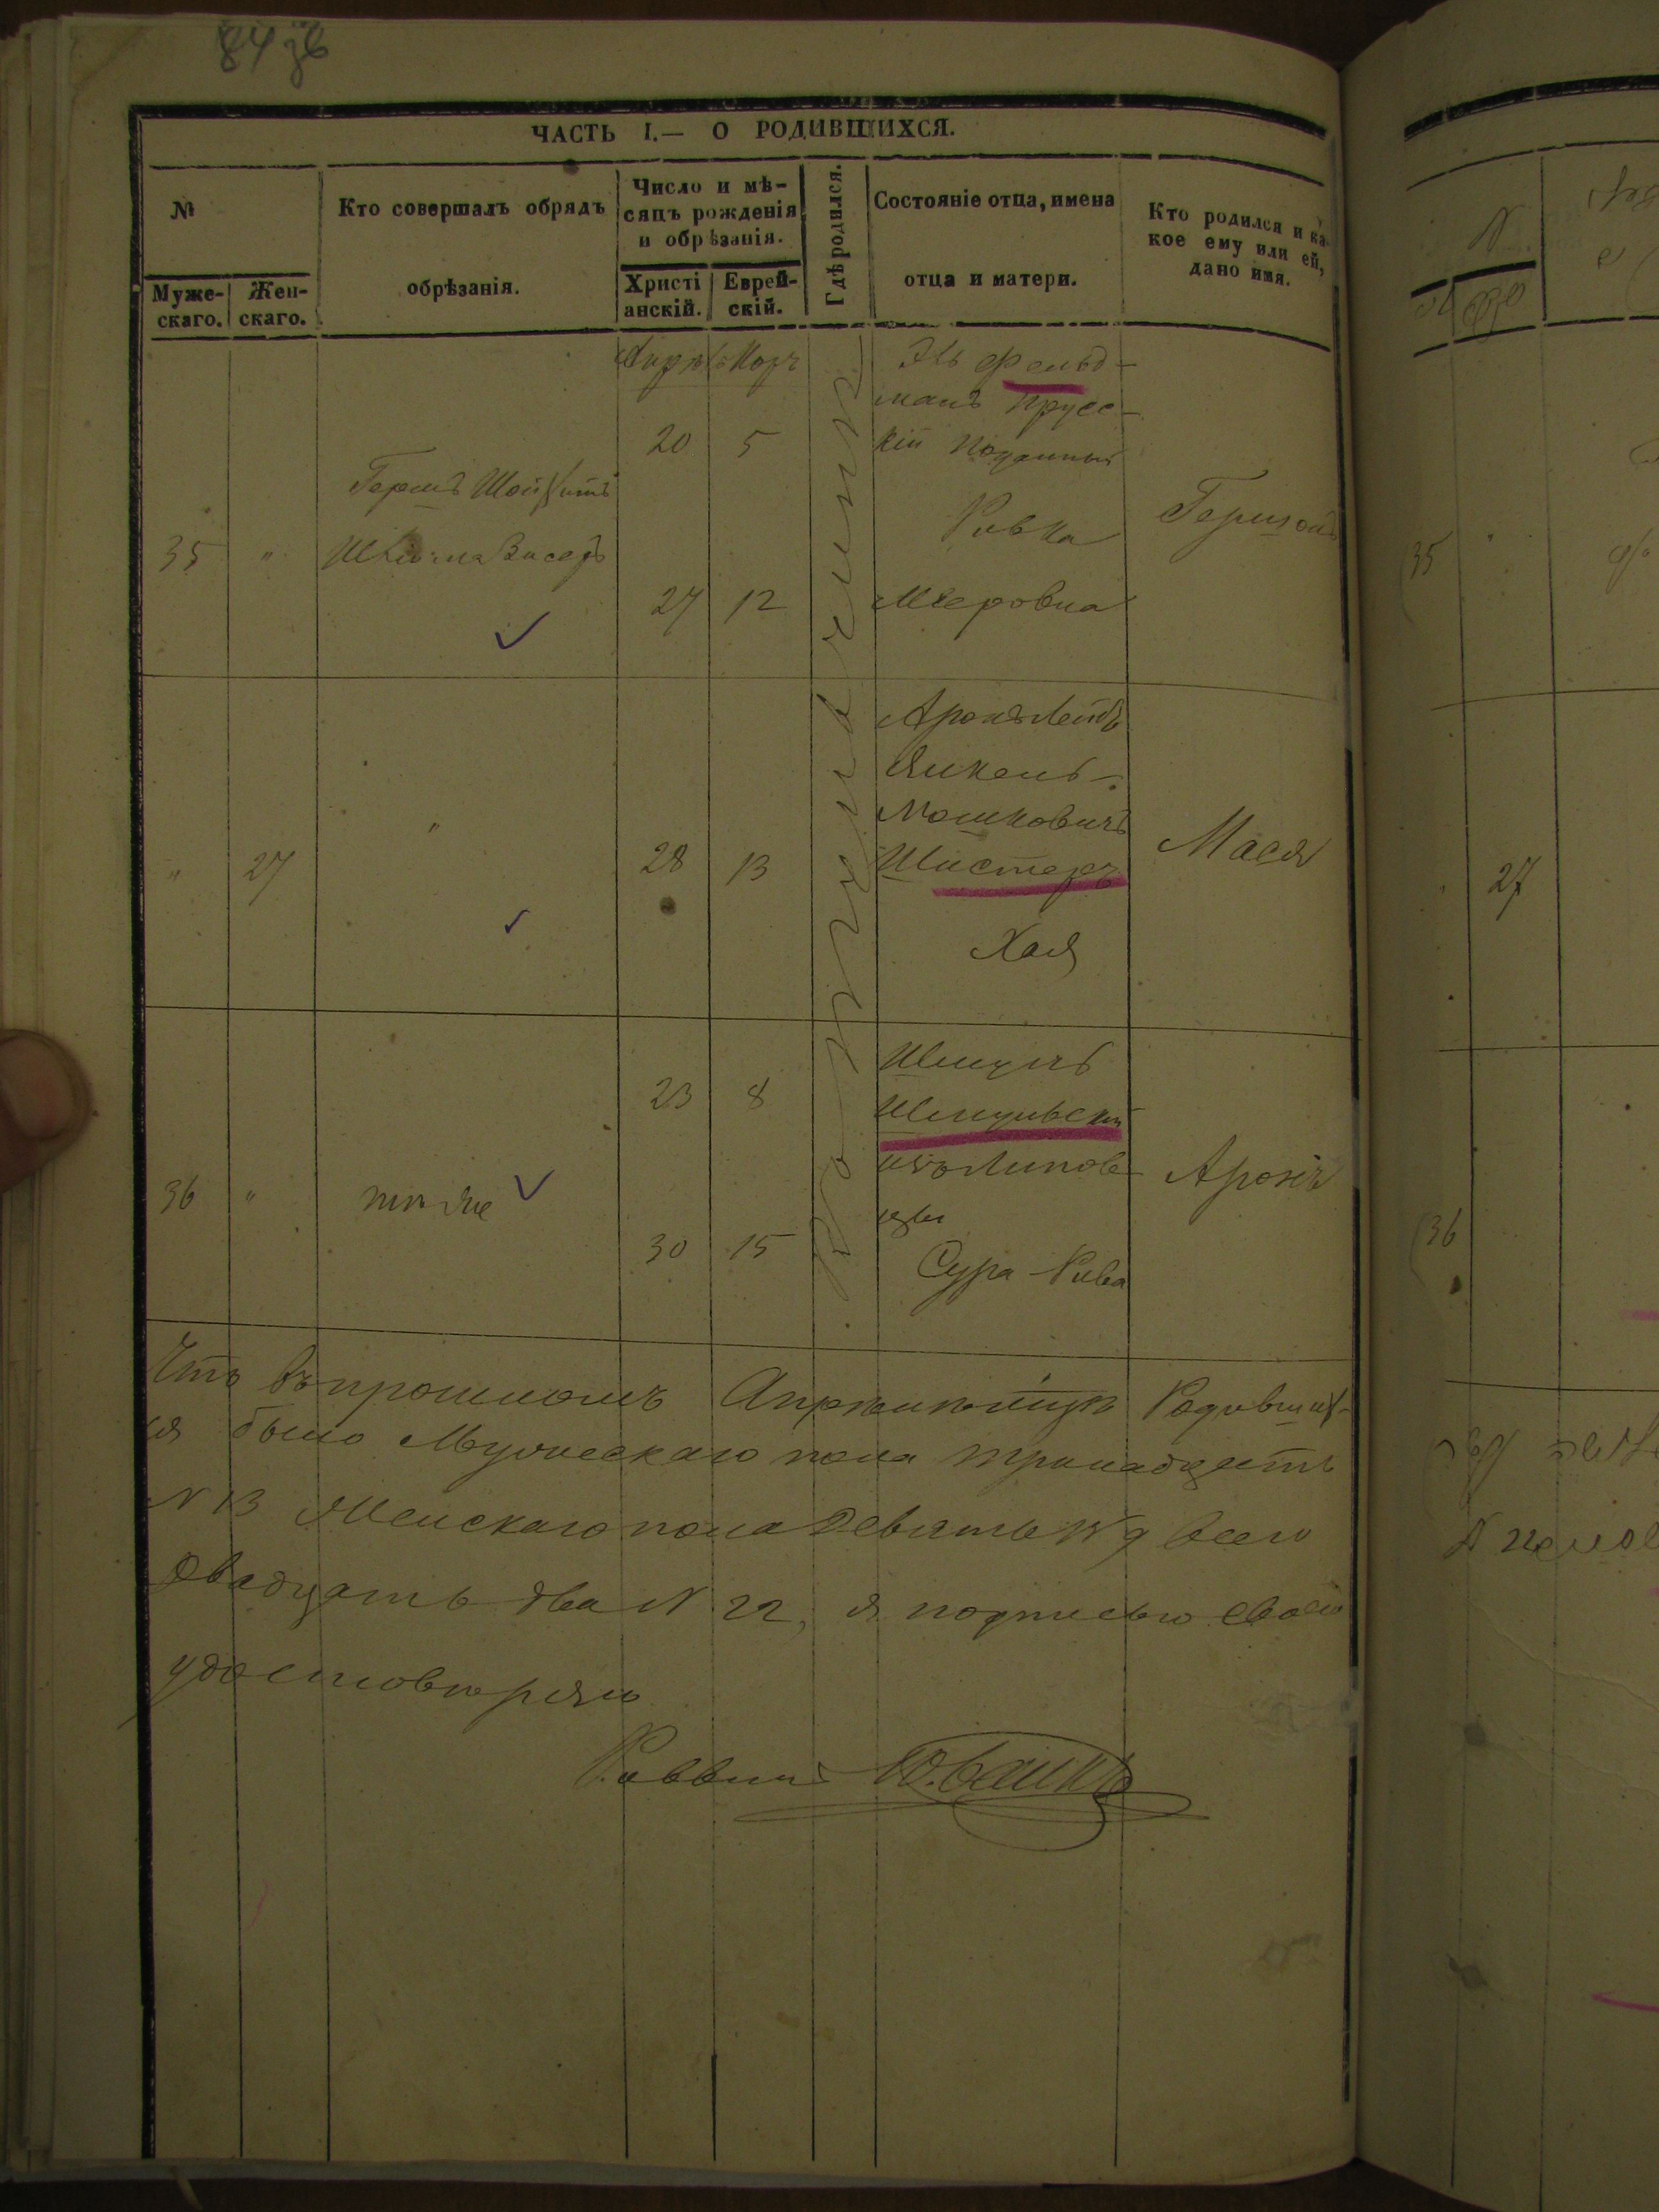 84 зв
ЧАСТЬ I.— О РОДИВШИХСЯ.
№
Муже-
скаго.
Жен-
скаго.
Кто совершалъ обрядъ
обрѣзанія.
Число и мѣ-
сяцъ рожденія
и обрѣзанія.
Христі
анскій.
Еврей-
скій.
Гдѣ родился.
Состояніе отца, имена
отца и матери.
Кто родился и ка-
кое ему или ей,
дано имя.
35 "
Гершъ
20 5
27 12
Фельд-
манъ Прусс-
кій Поданный
Ривка
Меровна
Гершонъ
" 27
"
28 13
Аронъ Лейбъ
Янкель-
Мошковичъ
Шистеръ
Хая
Мася
36 "
тоже
23 8
30 15
Шмуль
Шмульскій
изъ Липов
Сура-Рива
Аронъ
Что въ прошломъ Апрѣлѣ Родивших-
ся было Мужескаго пола тринадцать
N 13 Женскаго пола девять N 9 Всего
двадцать два N 22, я подписью своею
удостовѣряю
Раввинъ
35
27
36